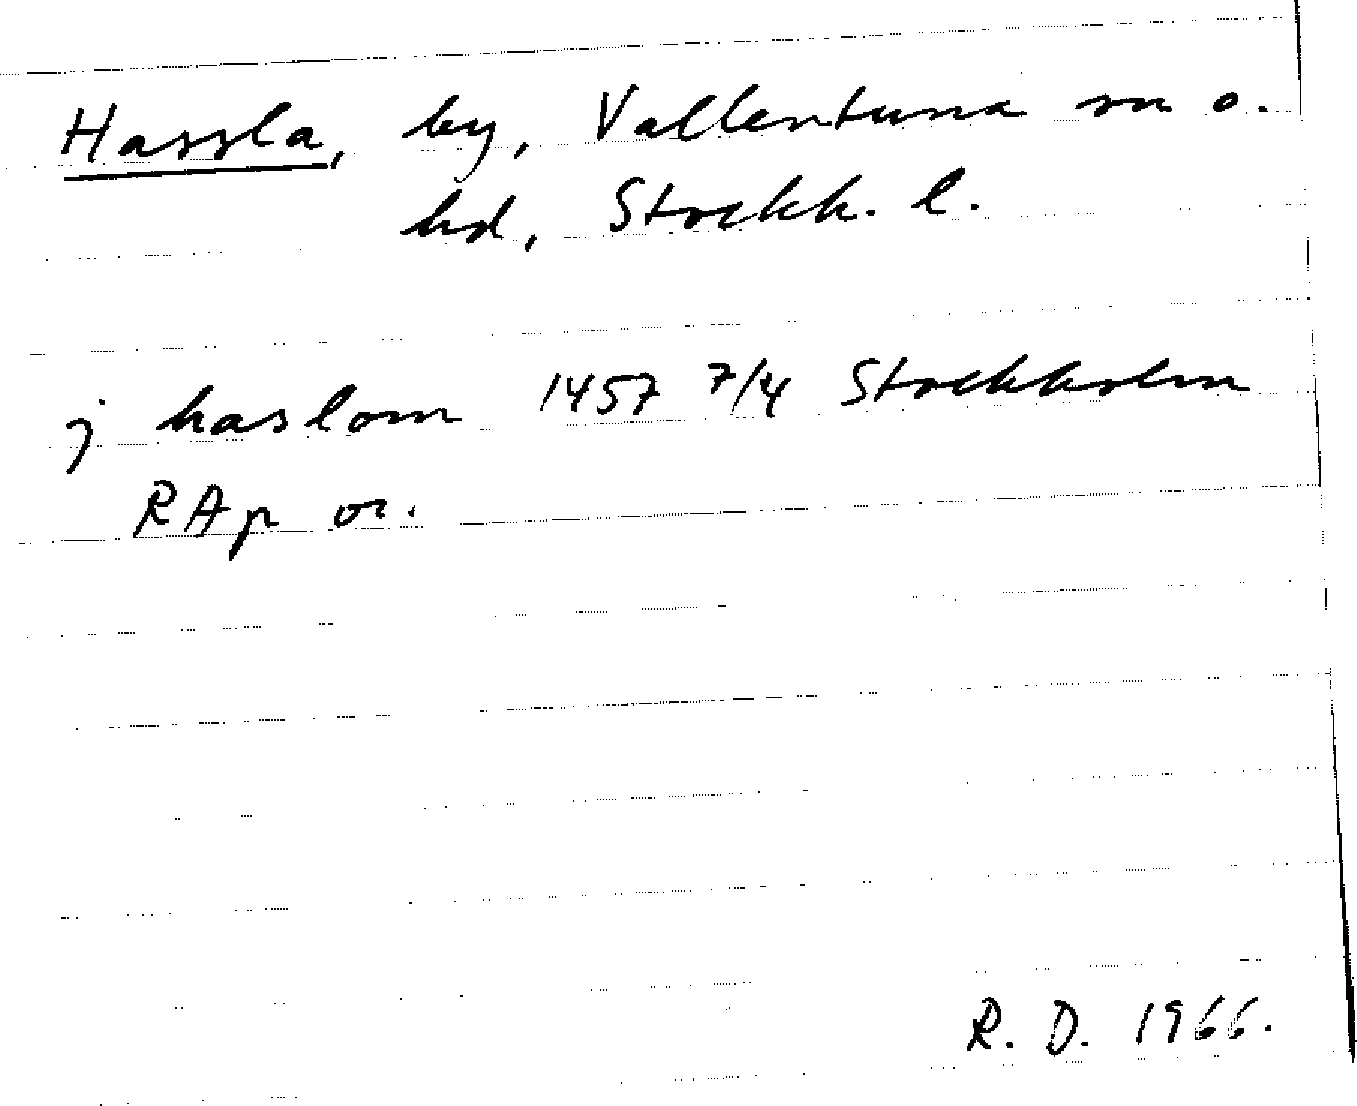 Hassla, by, Vallentuna sn o.
hd, Stockh. l.
j haslom 1457 7/4 Stockholm
RAp or.
R. D. 1966.